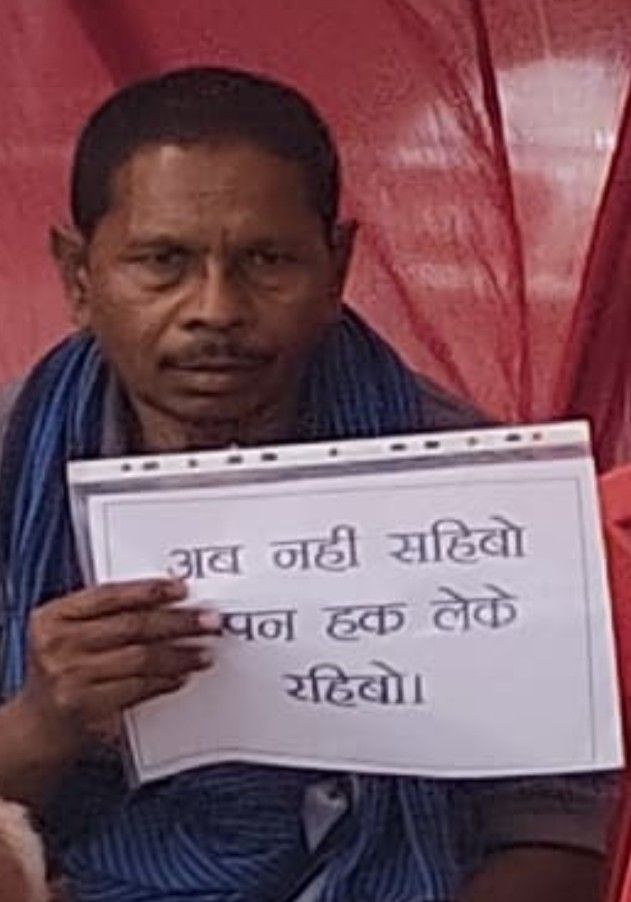 अब नहीं सहिबो
अपन हक लेके
रहिबो।